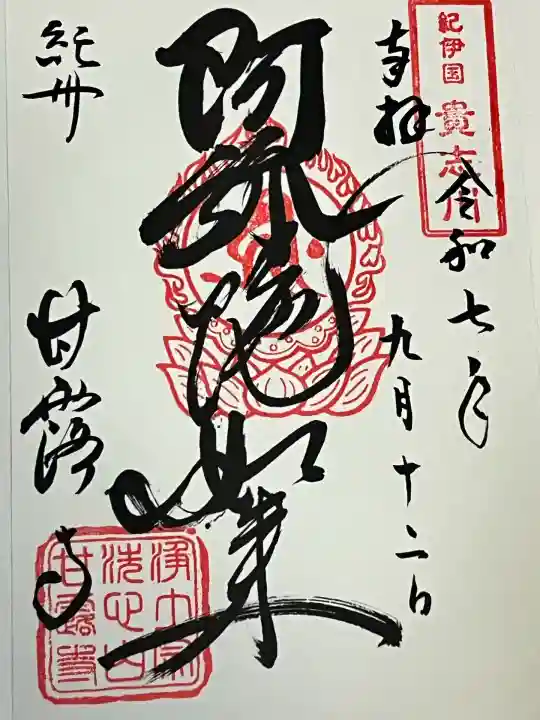 紀伊国 貴志川
奉拝
令和七年
九月十二日
阿弥陀如来
紀州
甘露寺
浄土宗
洗心山
甘露寺